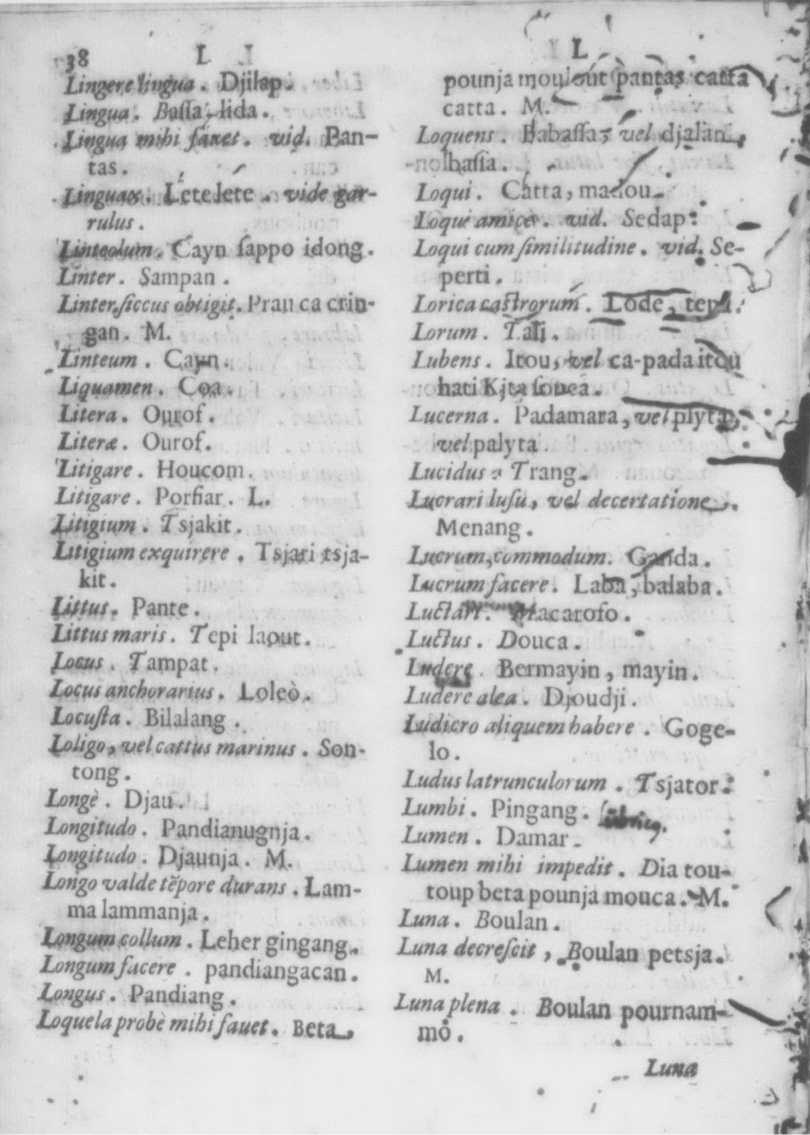 38 L
Lingere lingua. Djilap.
Lingua. Bassa, lida.
Lingua mihi favet. vid. Pan-
tas.
Linguax. Lete lete. vide gar-
rulus.
Linteolum. Cayn sappo idong.
Linter. Sampan.
Linter siccus obtigit. Prau ca crin-
gan. M.
Linteum. Cayn.
Liquamen. Coa.
Litera. Ourof.
Literæ. Ourof.
Litigare. Houcom.
Litigare. Porfiar. L.
Litigium. Tsjakit.
Litigium exquirere. Tsjari tsja-
kit.
Littus. Pante.
Littus maris. Tepi laout.
Locus. Tampat.
Locus anchorarius. Loleò.
Locusta. Bilalang.
Loligo, vel cattus marinus. Son-
tong.
Longè. Djau.
Longitudo. Pandianugnja.
Longitudo. Djaunja. M.
Longo valde tẽpore durans. Lam-
ma lammanja.
Longum collum. Leher gingang.
Longum facere. pandiangacan.
Longus. Pandiang.
Loquela probè mihi favet. Beta,
L
pounja moulout pantas catta
catta. M.
Loquens. Babassa, vel djalan,
bassa.
Loqui. Catta, madou.
Loqui amicè. vid. Sedap.
Loqui cum similitudine. vid. Se-
perti.
Lorica castrorum. Lode, tepi.
Lorum. Tali.
Lubens. Itou, vel ca-pada itou
hati Kita souca.
Lucerna. Padamara, vel plyta,
vel palyta
Lucidus. Trang.
Lucrari lusu, vel decertatione.
Menang.
Lucrum, commodum. Ganda.
Lucrum facere. Laba, balaba.
Luctari. Macaroso.
Luctus. Douca.
Ludere. Bermayin, mayin.
Ludere alea. Djoudji.
Ludicro aliquem habere. Goge-
lo.
Ludus latrunculorum. Tsjator.
Lumbi. Pingang.
Lumen. Damar.
Lumen mihi impedit. Dia tou-
toup beta pounja mouca. M.
Luna. Boulan.
Luna decrescit, Boulan petsja.
M.
Luna plena. Boulan pournam-
mo.
Luna